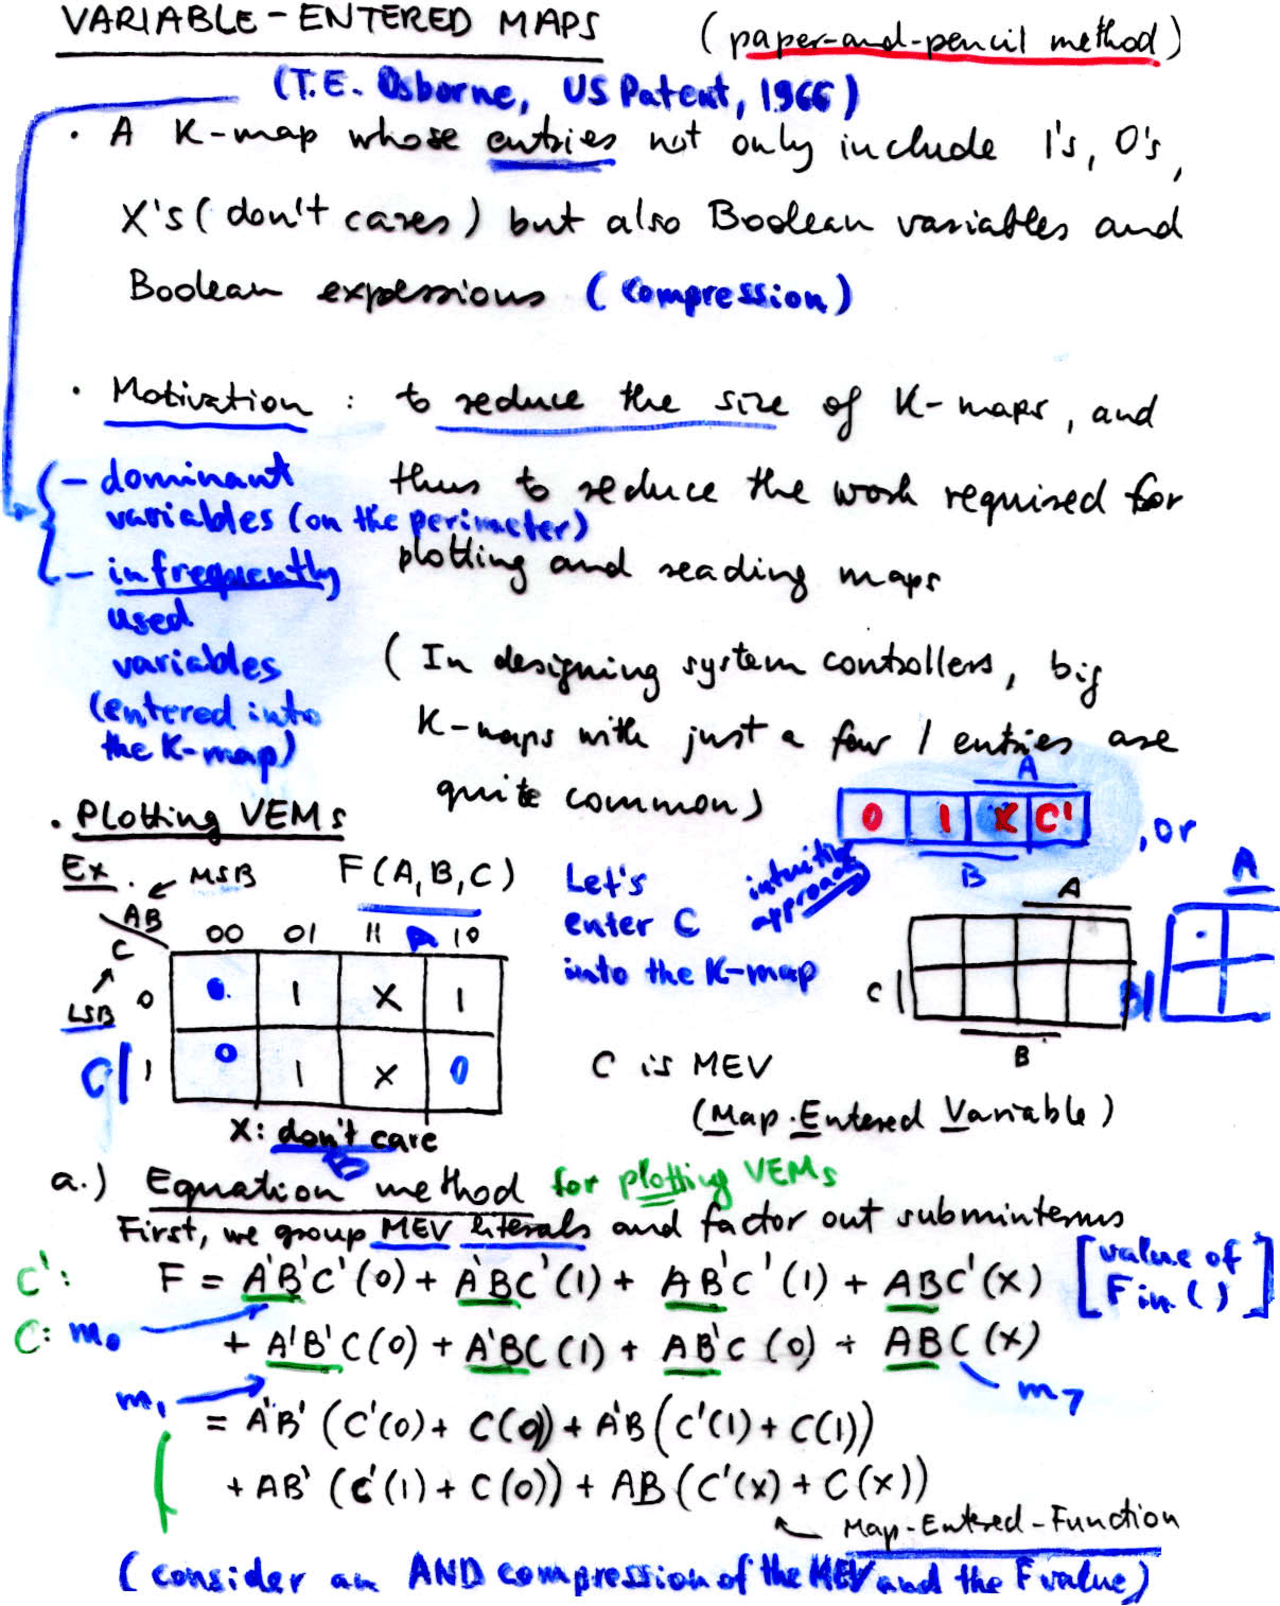 VARIABLE-ENTERED MAPS (paper-and-pencil method)
(T.E. Osborne, US Patent, 1966)
• A K-map whose entries not only include 1's, 0's,
X's (don't cares) but also Boolean variables and
Boolean expessions (compression)
• Motivation : to reduce the size of K-maps, and
thus to reduce the work required for
plotting and reading maps
- dominant
variables (on the perimeter)
- infrequently
used
variables
(entered into
the K-map)
(In designing system controllers, big
K-maps with just a few 1 entries are
quite common)
A
0 1 X C'
B
, or
• Plotting VEMs
Ex. MSB F(A,B,C)
AB
C
00 01 11 A 10
0 0 1 X 1
LSB
C 1 0 1 X 0
X: don't care
Let's
enter C
into the K-map
intuitive
approach
A
C
B
A
B
C is MEV
(Map-Entered Variable)
a.) Equation method for plotting VEMs
First, we group MEV literals and factor out subminterms
C': F = A'B'C'(0) + A'BC'(1) + AB'C'(1) + ABC'(X) [value of
F in ( )]
C: m₀ + A'B'C(0) + A'BC(1) + AB'C(0) + ABC(X)
m₁ m₇
= A'B' (C'(0) + C(0)) + A'B (C'(1) + C(1))
+ AB' (C'(1) + C(0)) + AB (C'(X) + C(X))
Map-Entered-Function
(consider an AND compression of the MEV and the F value)